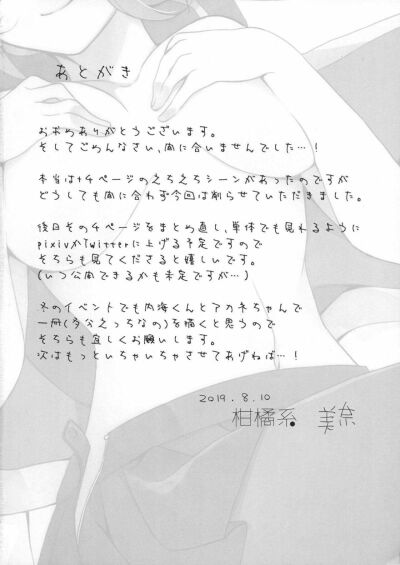 あとがき
お求めありがとうございます。
そしてごめんなさい、間に合いませんでした…!
本当は+4ページのえちえちシーンがあったのですが
どうしても間に合わず今回は削らせていただきました。
後日その4ページをまとめ直し、単体でも見れるように
pixivかTwitterに上げる予定ですので
そちらも見てくださると嬉しいです。
(いつ公開できるかも未定ですが…)
冬のイベントでも内海くんとアカネちゃんで
一冊(多分えっちなの)を描くと思うので
そちらも宜しくお願いします。
次はもっといちゃいちゃさせてあげねば…!
2019.8.10
柑橘系● 美奈